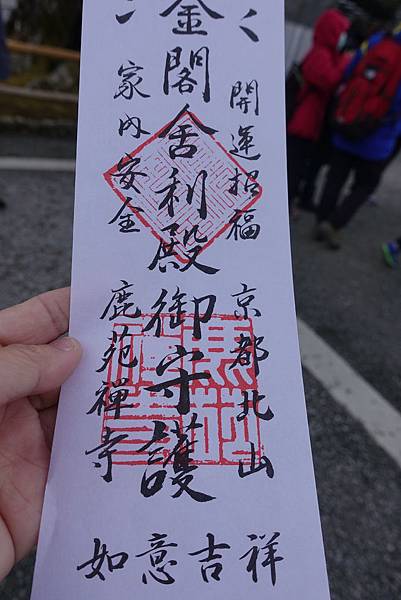 開運招福
京都北山
金閣舍利殿御守護
家內安全
鹿苑禅寺
如意吉祥